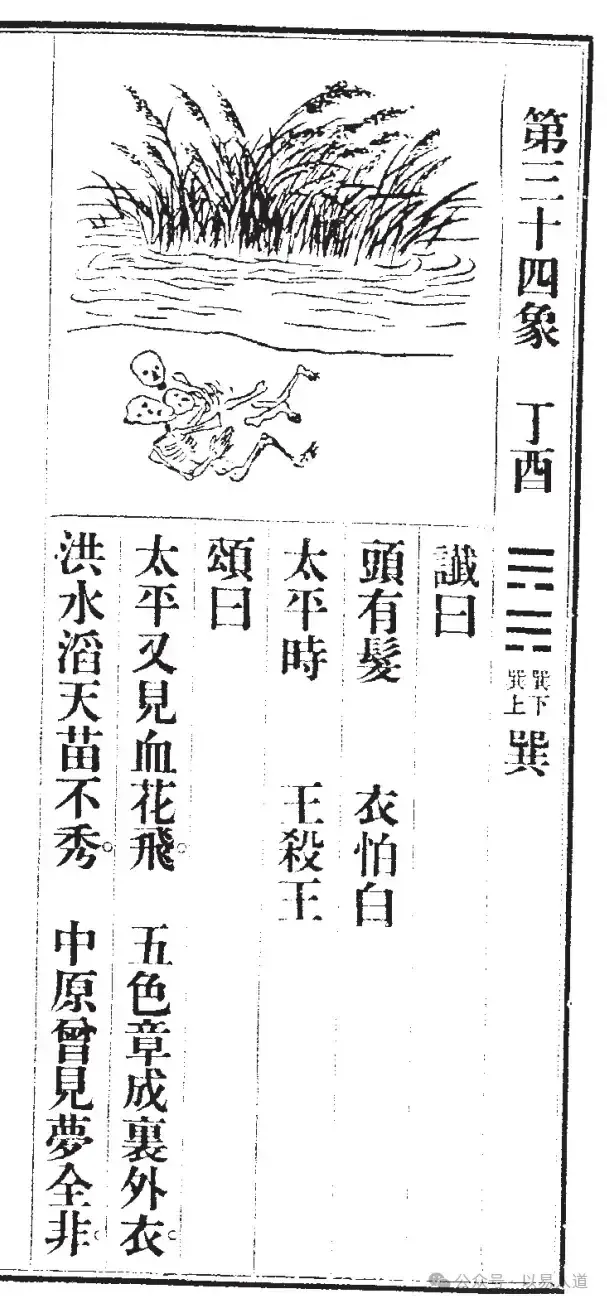 第三十四象 丁酉 巽下巽上 巽
讖曰
頭有髮 衣怕白
太平時 王殺王
頌曰
太平又見血花飛。五色章成裏外衣。
洪水滔天苗不秀。中原曾見夢全非。
公众号·以易入道